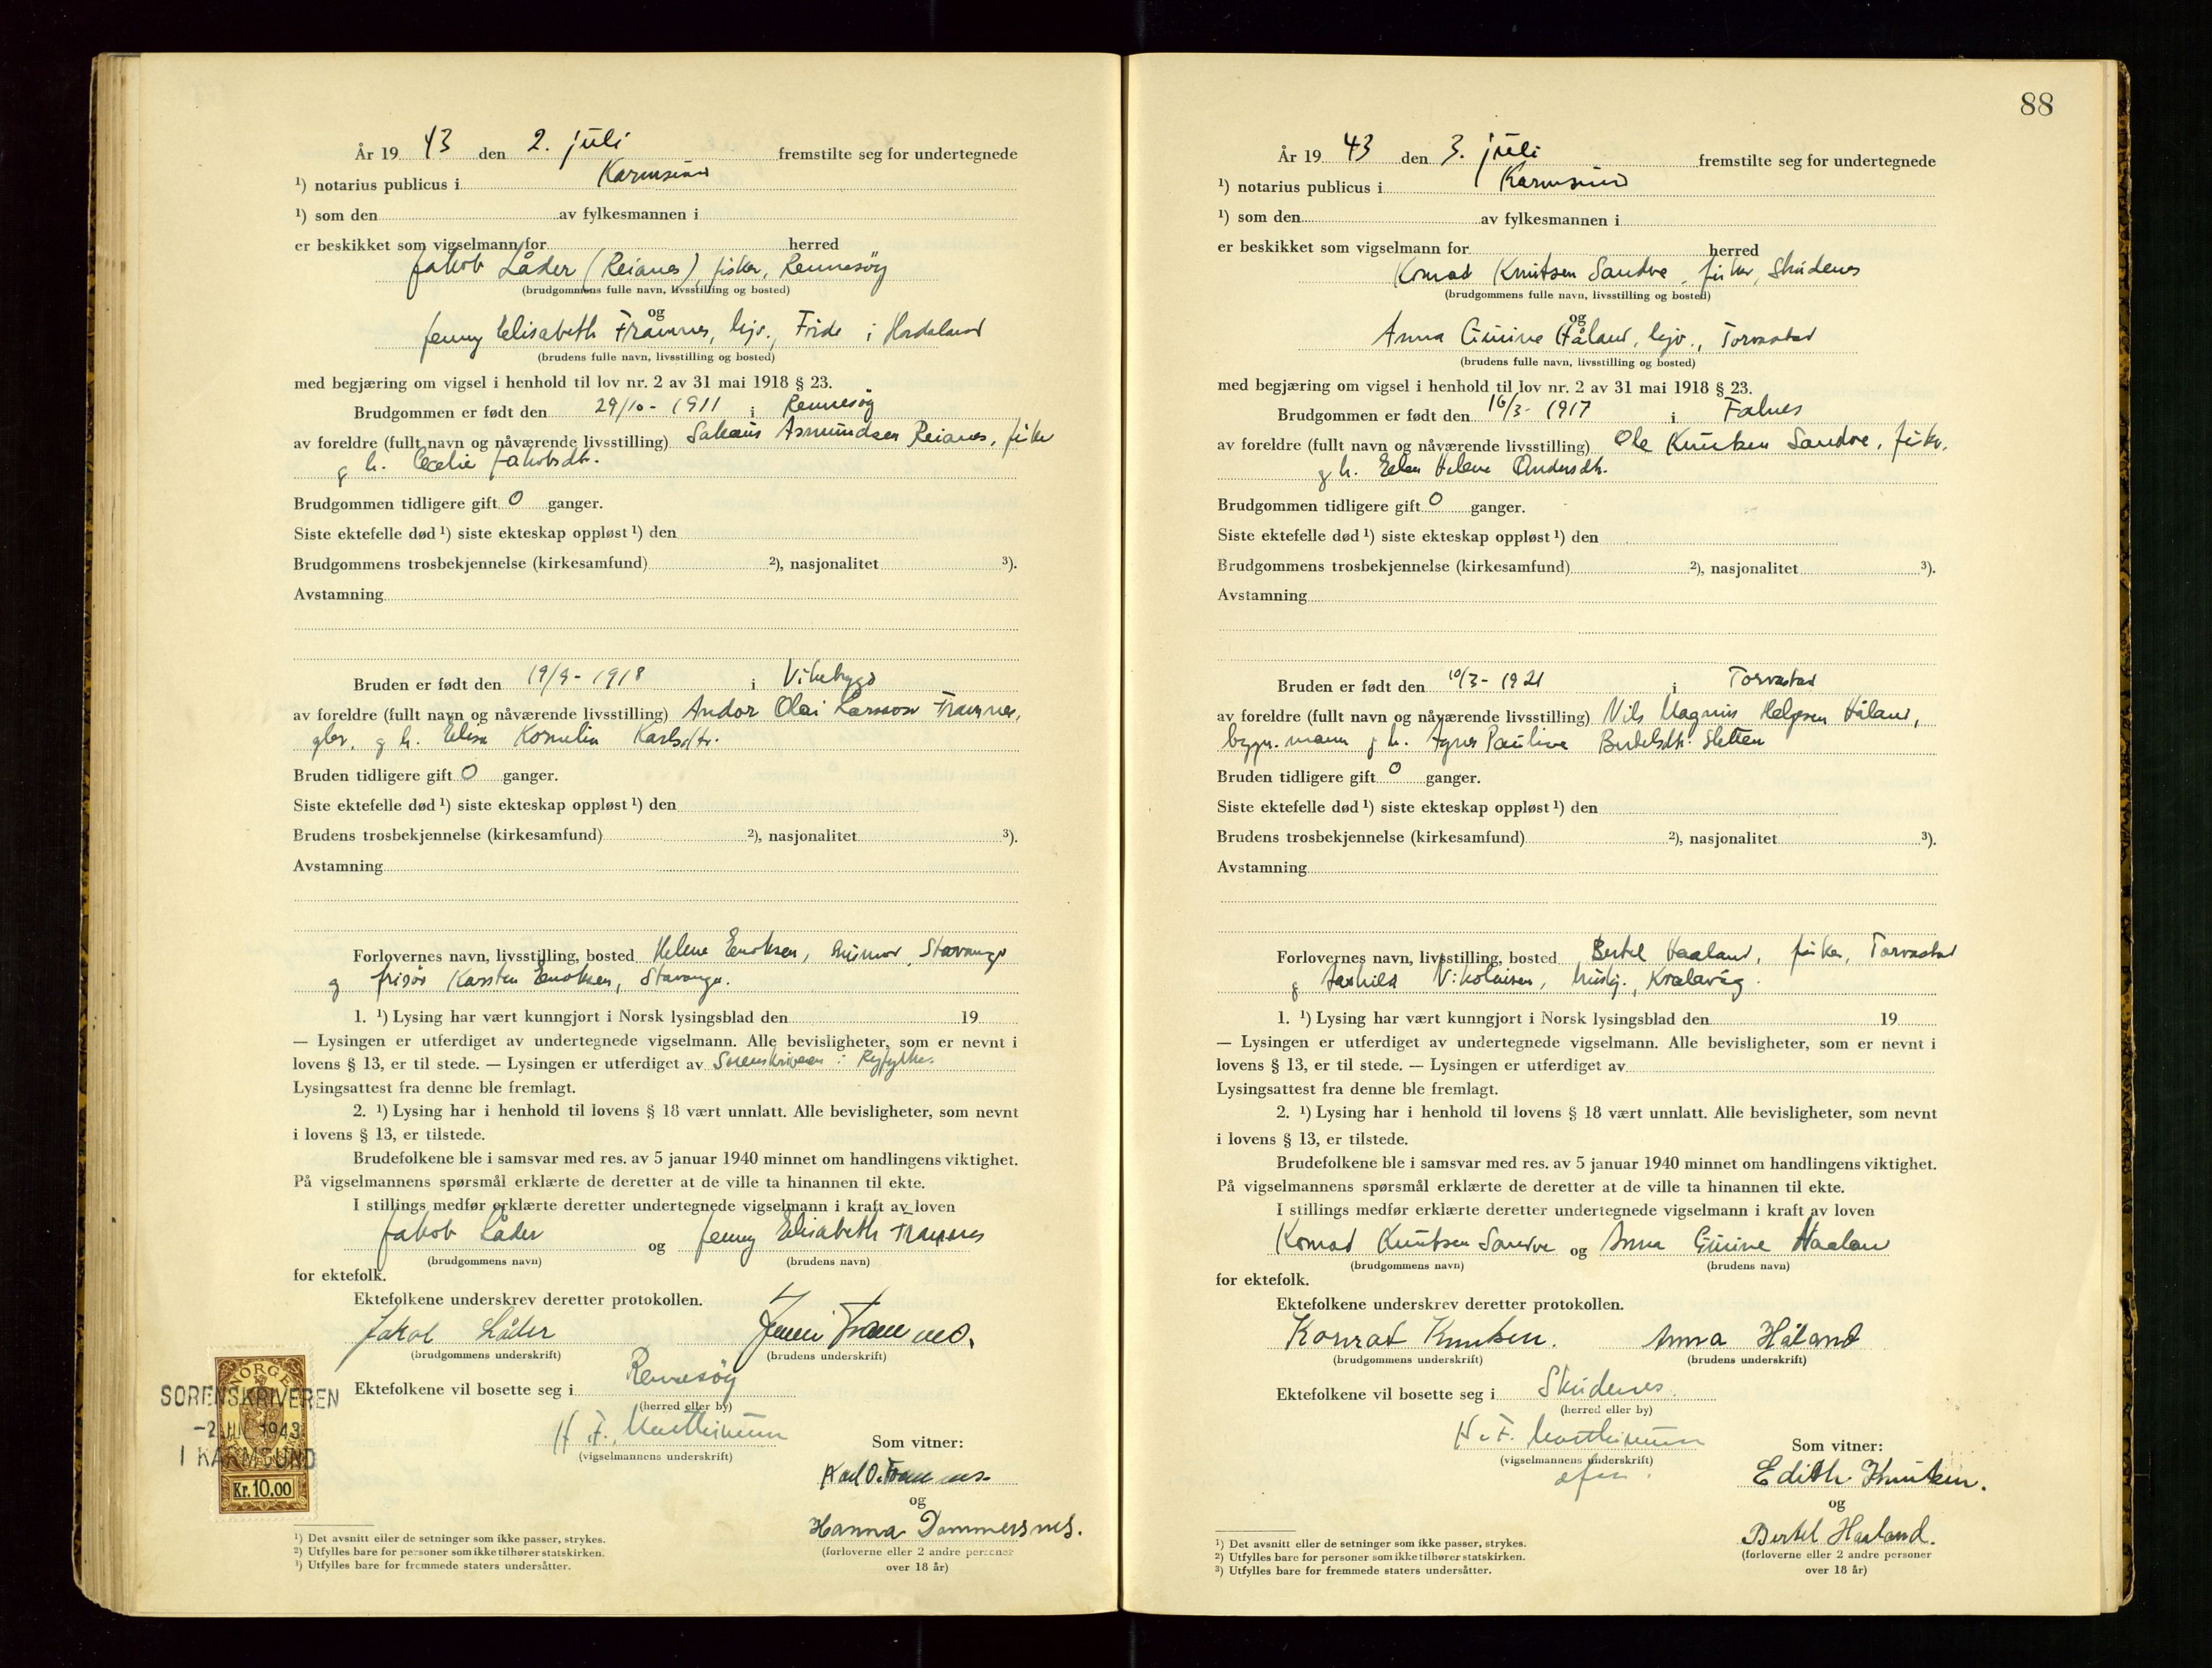 År 19 43 den 2. juli fremstilte seg for undertegnede
¹) notarius publicus i Karmsund
¹) som den av fylkesmannen i
er beskikket som vigselmann for herred
Jakob Låder (Reianes) fisker, Rennesöy
(brudgommens fulle navn, livsstilling og bosted)
og
Jenny Elisabeth Framnes, hjv., i Hordaland
(brudens fulle navn, livsstilling og bosted)
med begjæring om vigsel i henhold til lov nr. 2 av 31 mai 1918 § 23.
Brudgommen er født den 29/10 - 1911 i Rennesöy
av foreldre (fullt navn og nåværende livsstilling) Asmundsen Reianes, fisker
g h. Cecelie Jakobsdtr.
Brudgommen tidligere gift 0 ganger.
Siste ektefelle død ¹) siste ekteskap oppløst ¹) den
Brudgommens trosbekjennelse (kirkesamfund) ²), nasjonalitet ³).
Avstamning
Bruden er født den 19/9 - 1918 i Vikebygd
av foreldre (fullt navn og nåværende livsstilling) Andor Olai Larsson Framnes,
g h. Kornelia Karlsdtr.
Bruden tidligere gift 0 ganger.
Siste ektefelle død ¹) siste ekteskap oppløst ¹) den
Brudens trosbekjennelse (kirkesamfund) ²), nasjonalitet ³).
Avstamning
Forlovernes navn, livsstilling, bosted Helene Enoksen, husmor, Stavanger
g frisör Karsten Enoksen, Stavanger.
1. ¹) Lysing har vært kunngjort i Norsk lysingsblad den 19
— Lysingen er utferdiget av undertegnede vigselmann. Alle bevisligheter, som er nevnt i
lovens § 13, er til stede. — Lysingen er utferdiget av Sorenskriveren i Ryfylke.
Lysingsattest fra denne ble fremlagt.
2. ¹) Lysing har i henhold til lovens § 18 vært unnlatt. Alle bevisligheter, som nevnt
i lovens § 13, er tilstede.
Brudefolkene ble i samsvar med res. av 5 januar 1940 minnet om handlingens viktighet.
På vigselmannens spørsmål erklærte de deretter at de ville ta hinannen til ekte.
I stillings medfør erklærte deretter undertegnede vigselmann i kraft av loven
Jakob Låder og Jenny Elisabeth Framnes
(brudgommens navn) (brudens navn)
for ektefolk.
Ektefolkene underskrev deretter protokollen.
Jakob Låder Jenni Framnes.
(brudgommens underskrift) (brudens underskrift)
Ektefolkene vil bosette seg i Rennesöy
(herred eller by)
H. F. Marthinussen
(vigselmannens underskrift)
Som vitner:
Karl O. Framnes.
og
Hanna Dommersnes.
(forloverne eller 2 andre personer
over 18 år)
NORGE
SORENSKRIVEREN
-2 JUL 1943
I KARMSUND
Kr. 10.00
¹) Det avsnitt eller de setninger som ikke passer, strykes.
²) Utfylles bare for personer som ikke tilhører statskirken.
³) Utfylles bare for fremmede staters undersåtter.
88
År 19 43 den 3. juli fremstilte seg for undertegnede
¹) notarius publicus i Karmsund
¹) som den av fylkesmannen i
er beskikket som vigselmann for herred
Konrad Knutsen Sandve, fisker, Skudenes
(brudgommens fulle navn, livsstilling og bosted)
og
Anna Gurine Håland, hjv., Torvastad
(brudens fulle navn, livsstilling og bosted)
med begjæring om vigsel i henhold til lov nr. 2 av 31 mai 1918 § 23.
Brudgommen er født den 16/3 - 1917 i Falnes
av foreldre (fullt navn og nåværende livsstilling) Ole Knutsen Sandve, fisker,
g h. Helene Andersdtr.
Brudgommen tidligere gift 0 ganger.
Siste ektefelle død ¹) siste ekteskap oppløst ¹) den
Brudgommens trosbekjennelse (kirkesamfund) ²), nasjonalitet ³).
Avstamning
Bruden er født den 10/3 - 1921 i Torvastad
av foreldre (fullt navn og nåværende livsstilling) Nils Magnus Helgesen Håland,
bygn. mann g h. Agnes Pauline Bertelsdtr. Sletten
Bruden tidligere gift 0 ganger.
Siste ektefelle død ¹) siste ekteskap oppløst ¹) den
Brudens trosbekjennelse (kirkesamfund) ²), nasjonalitet ³).
Avstamning
Forlovernes navn, livsstilling, bosted Bertel Haaland, fisker, Torvastad
g Nikolaisen, Kvalavåg.
1. ¹) Lysing har vært kunngjort i Norsk lysingsblad den 19
— Lysingen er utferdiget av undertegnede vigselmann. Alle bevisligheter, som er nevnt i
lovens § 13, er til stede. — Lysingen er utferdiget av
Lysingsattest fra denne ble fremlagt.
2. ¹) Lysing har i henhold til lovens § 18 vært unnlatt. Alle bevisligheter, som nevnt
i lovens § 13, er tilstede.
Brudefolkene ble i samsvar med res. av 5 januar 1940 minnet om handlingens viktighet.
På vigselmannens spørsmål erklærte de deretter at de ville ta hinannen til ekte.
I stillings medfør erklærte deretter undertegnede vigselmann i kraft av loven
Konrad Knutsen Sandve og Anna Gurine Haaland
(brudgommens navn) (brudens navn)
for ektefolk.
Ektefolkene underskrev deretter protokollen.
Konrad Knutsen. Anna Håland
(brudgommens underskrift) (brudens underskrift)
Ektefolkene vil bosette seg i Skudenes.
(herred eller by)
H. F. Marthinussen
(vigselmannens underskrift)
Som vitner:
Edith Knutsen.
og
Bertel Haaland.
(forloverne eller 2 andre personer
over 18 år)
¹) Det avsnitt eller de setninger som ikke passer, strykes.
²) Utfylles bare for personer som ikke tilhører statskirken.
³) Utfylles bare for fremmede staters undersåtter.